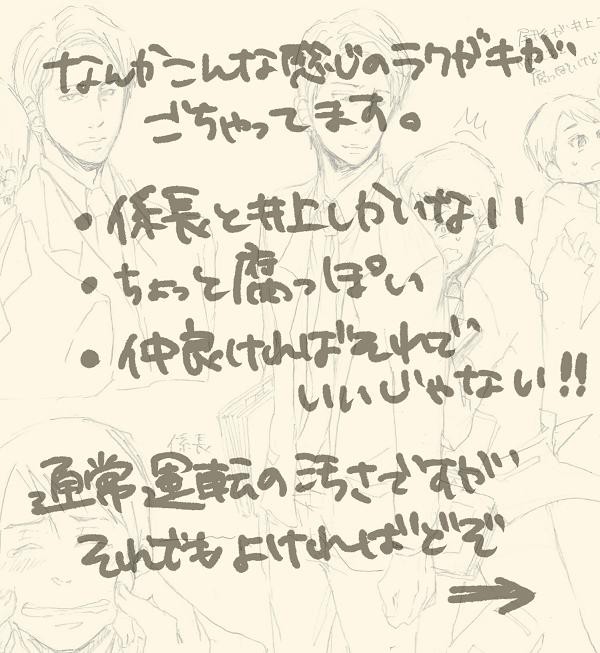 なんかこんな感じのラクガキがい
ごちゃってます。
・係長と井上しかいない
・ちょっと腐っぽい
・仲良ければそれで
いいじゃない!!
係長
通常運転の汚さですがい
それでもよければどぞ
→